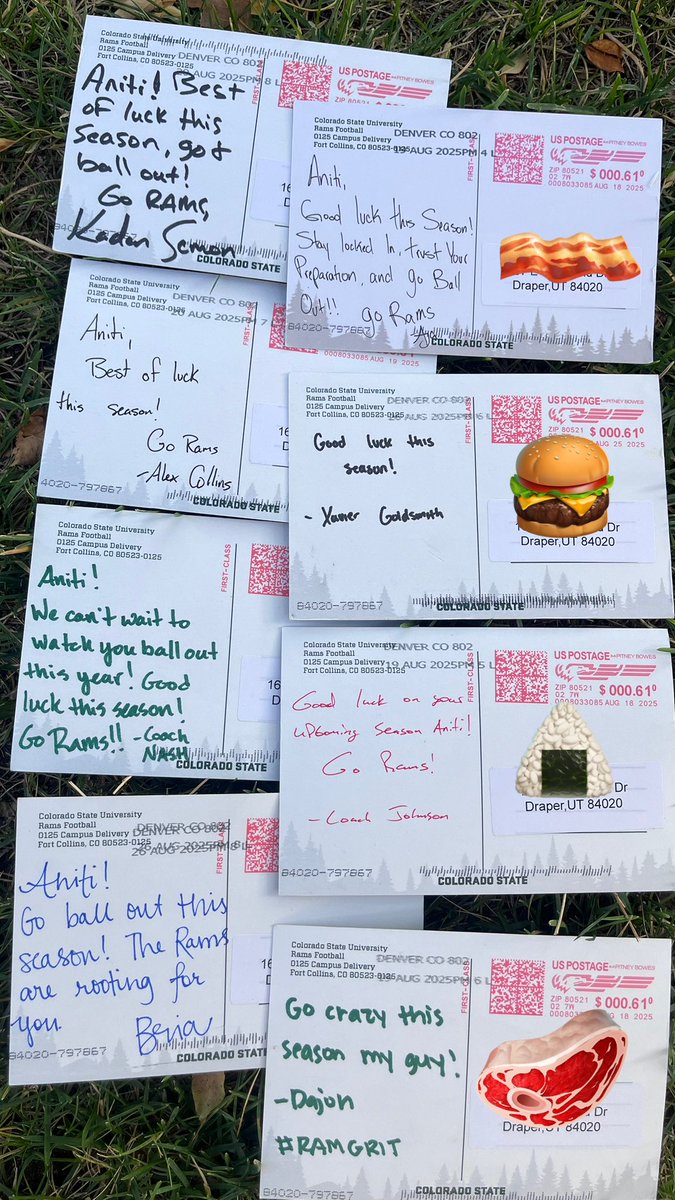 Colorado State University
Rams Football
0125 Campus Delivery
Fort Collins, CO 80523-0125
DENVER CO 802
AUG 2025PM 8 L
FIRST-CLASS
US POSTAGE PITNEY BOWES
Aniti! Best
of luck this
season, go
ball out!
Go RAMS,
Kadan
COLORADO STATE
Colorado State University
Rams Football
0125 Campus Delivery
Fort Collins, CO 80523-0125
DENVER CO 802
AUG 2025PM 4 L
FIRST-CLASS
US POSTAGE PITNEY BOWES
ZIP 80521 $ 000.61⁰
02 7W
0008033085 AUG 18 2025
Aniti,
Good luck this Season!
Stay locked In, trust Your
Preparation, and go Ball
Out!! go Rams
Draper,UT 84020
84020-797867
COLORADO STATE
Colorado State University
Rams Football
0125 Campus Delivery
Fort Collins, CO 80523-0125
DENVER CO 802
20 AUG 2025PM 7
FIRST-CLASS
0008033085 AUG 19 2025
Aniti,
Best of luck
this season!
Go Rams
-Alex Collins
84020-797867
COLORADO STATE
Colorado State University
Rams Football
0125 Campus Delivery
Fort Collins, CO 80523-0125
DENVER CO 802
26 AUG 2025PM 6 L
FIRST-CLASS
US POSTAGE PITNEY BOWES
ZIP 80521 $ 000.61⁰
02 7W
AUG 25 2025
Good luck this
season!
- Xavier Goldsmith
Dr
Draper,UT 84020
84020-797867
COLORADO STATE
Colorado State University
Rams Football
0125 Campus Delivery
Fort Collins, CO 80523-0125
FIRST-CLASS
Aniti!
We can't wait to
watch you ball out
this year! Good
luck this season!
Go Rams!! -Coach
NASH
16
COLORADO STATE
Colorado State University
Rams Football
0125 Campus Delivery
Fort Collins, CO 80523-0125
DENVER CO 802
19 AUG 2025PM 5 L
FIRST-CLASS
US POSTAGE PITNEY BOWES
ZIP 80521 $ 000.61⁰
02 7W
0008033085 AUG 18 2025
Good luck on your
upcoming Season Aniti!
Go Rams!
-Coach Johnson
Dr
Draper,UT 84020
84020-797867
COLORADO STATE
Colorado State University
Rams Football
0125 Campus Delivery
Fort Collins, CO 80523-0125
DENVER CO 802
26 AUG 2025PM 8 L
FIRST-CLASS
Aniti!
Go ball out this
season! The Rams
are rooting for
you.
84020-797867
COLORADO STATE
Colorado State University
Rams Football
0125 Campus Delivery
Fort Collins, CO 80523-0125
DENVER CO 802
AUG 2025PM 6 L
FIRST-CLASS
US POSTAGE PITNEY BOWES
ZIP 80521 $ 000.61⁰
02 7W
AUG 18 2025
Go crazy this
season my guy!
-Dajon
#RAMGRIT
Dr
Draper,UT 84020
COLORADO STATE